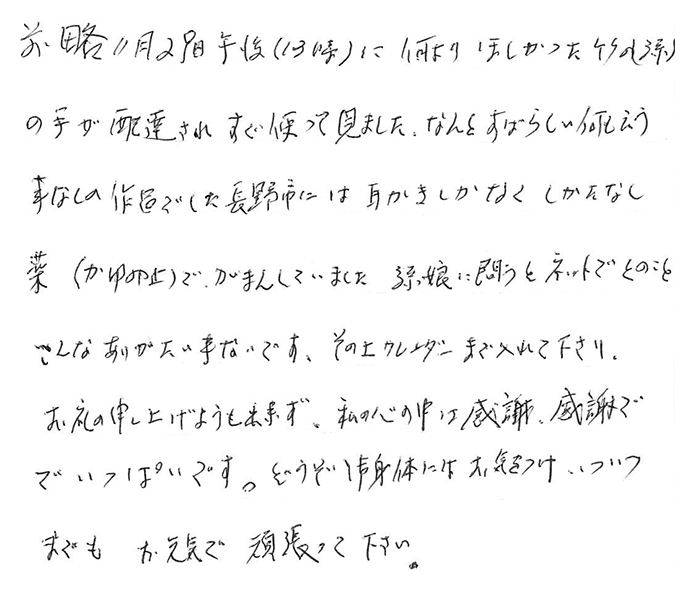 前略11月29日午後(13時)に 何より ほしかった 竹の(孫)
の手が 配達され すぐ使って見ました、なんと すばらしい 何も云う
事なしの 作品でした 長野市には 耳かきしかなく しかたなし
薬 (かゆみ止)で、がまんしていました 孫娘に問うと ネットでとのこと
こんな ありがたい事ないです、その上カレンダーまで入れて下さり、
お礼の申し上げようも出来ず、私の心の中は感謝、感謝で
でいっぱいです。どうぞ 身体には お気をつけ、いつい つ
までも お元気で 頑張って 下さい。